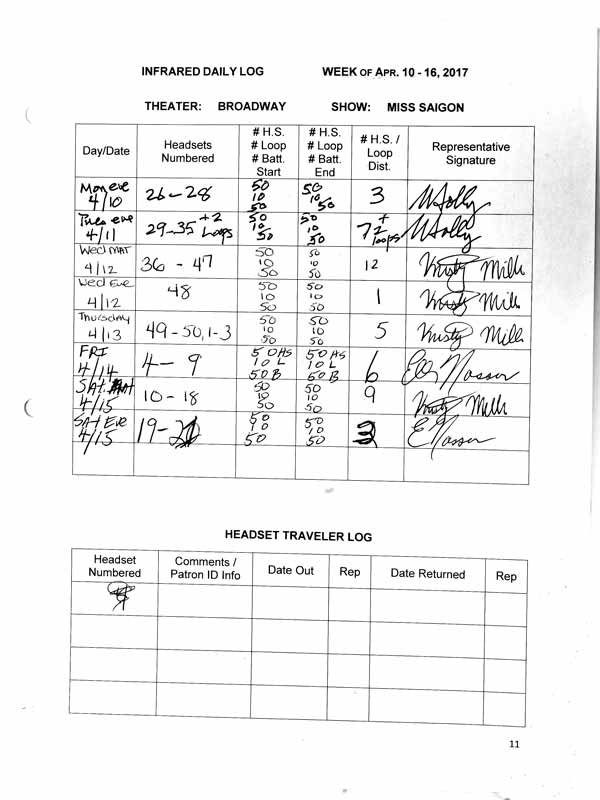 INFRARED DAILY LOG WEEK OF APR. 10 - 16, 2017
THEATER: BROADWAY SHOW: MISS SAIGON
Day/Date Headsets Numbered # H.S. # Loop # Batt. Start # H.S. # Loop # Batt. End # H.S. / Loop Dist. Representative Signature
Mon eve 4/10 26-28 50 10 50 50 10 50 3
Tues eve 4/11 29-35 +2 Loops 50 10 50 50 10 50 7 + 2 loops
Wed MAT 4/12 36 - 47 50 10 50 50 10 50 12 Kristy Mills
Wed Eve 4/12 48 50 10 50 50 10 50 1 Kristy Mills
Thursday 4/13 49-50, 1-3 50 10 50 50 10 50 5 Kristy Mills
FRI 4/14 4-9 50HS 10L 50B 50HS 10L 50B 6 Nasser
SAT. MAT 4/15 10-18 50 10 50 50 10 50 9 Kristy Mills
SAT EVE 4/15 19- 50 10 50 50 10 50 E Nasser
HEADSET TRAVELER LOG
Headset Numbered Comments / Patron ID Info Date Out Rep Date Returned Rep
11